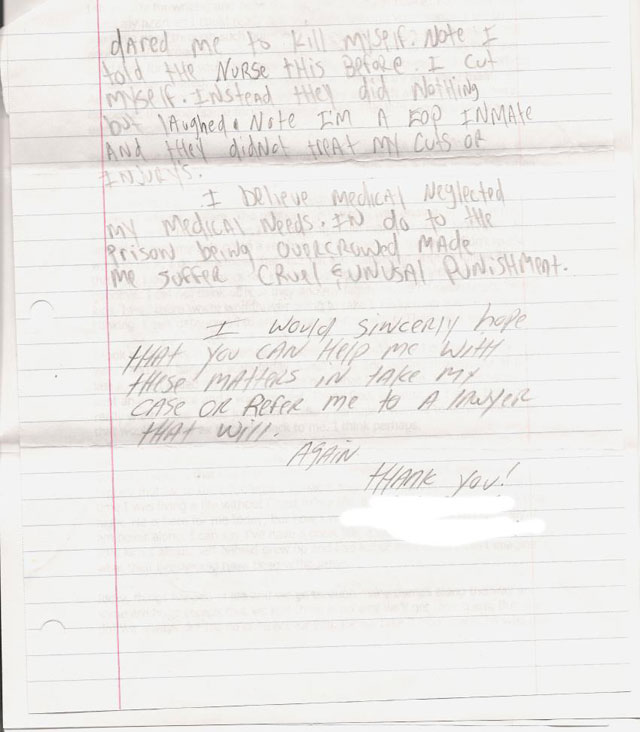 dared me to kill myself. Note I
told the Nurse this Before. I cut
myself. Instead they did Nothing
but laughed. Note I'm A EOP INMAte
AND they didNot treat My Cuts or
INJurys.
I believe Medical Neglected
my Medical Needs. IN do to the
prison being overcrowed MADe
me suffer Cruel & UNUSAl PUNishMent.
I would sincerly hope
that you can Help me with
these matters in take my
case or Refer me to a lawyer
that will.
Again
thank you!
to me. I think perhaps.